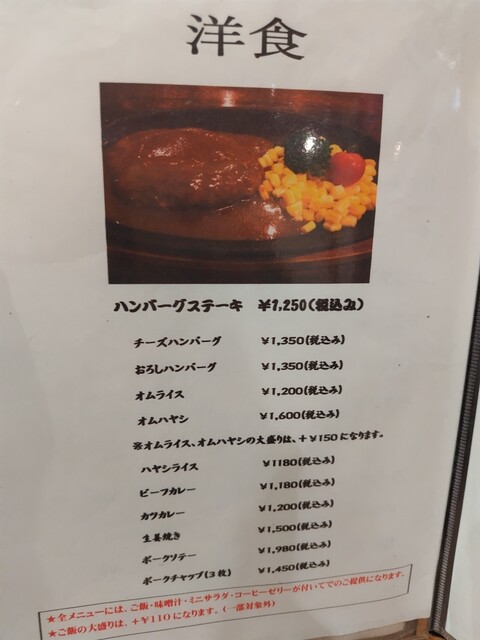 洋食
ハンバーグステーキ ¥1,250(税込み)
チーズハンバーグ ¥1,350(税込み)
おろしハンバーグ ¥1,350(税込み)
オムライス ¥1,200(税込み)
オムハヤシ ¥1,600(税込み)
※オムライス、オムハヤシの大盛りは、+¥150になります。
ハヤシライス ¥1180(税込み)
ビーフカレー ¥1,180(税込み)
カツカレー ¥1,200(税込み)
生姜焼き ¥1,500(税込み)
ポークソテー ¥1,980(税込み)
ポークチャップ(3枚) ¥1,450(税込み)
★全メニューには、ご飯・味噌汁・ミニサラダ・コーヒーゼリーが付いてでのご提供になります。
★ご飯の大盛りは、+¥110になります。(一部対象外)